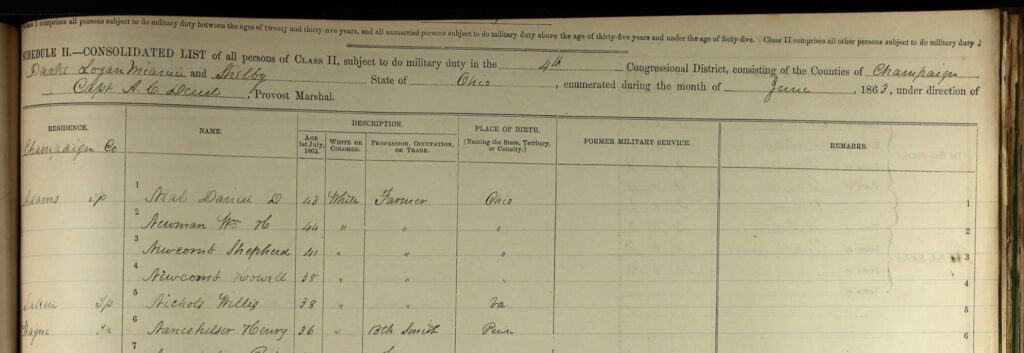 Class I comprises all persons subject to do military duty between the ages of twenty and thirty-five years, and all unmarried persons subject to do military duty above the age of thirty-five years and under the age of forty-five. Class II comprises all other persons subject to do military duty
SCHEDULE II.—CONSOLIDATED LIST of all persons of CLASS II, subject to do military duty in the 4th Congressional District, consisting of the Counties of Champaign
Darke Logan Miami and Shelby State of Ohio, enumerated during the month of June, 1863, under direction of
Capt A. C. Deuel, Provost Marshal.
RESIDENCE. NAME. DESCRIPTION. PLACE OF BIRTH. FORMER MILITARY SERVICE. REMARKS.
AGE 1st July, 1863. WHITE OR COLORED. PROFESSION, OCCUPATION, OR TRADE. (Naming the State, Territory, or Country.)
Champaign Co
Adams Tp 1 Neal Daniel D 43 White Farmer Ohio 1
2 Newman Wm H 44 " " " 2
3 Newcomb Shepherd 41 " " " 3
4 Newcomb Howell 38 " " " 4
Salem Tp 5 Nichols Willis 38 " " Va. 5
Wayne Tp 6 Henry 36 " Blk Smith Penn 6
7